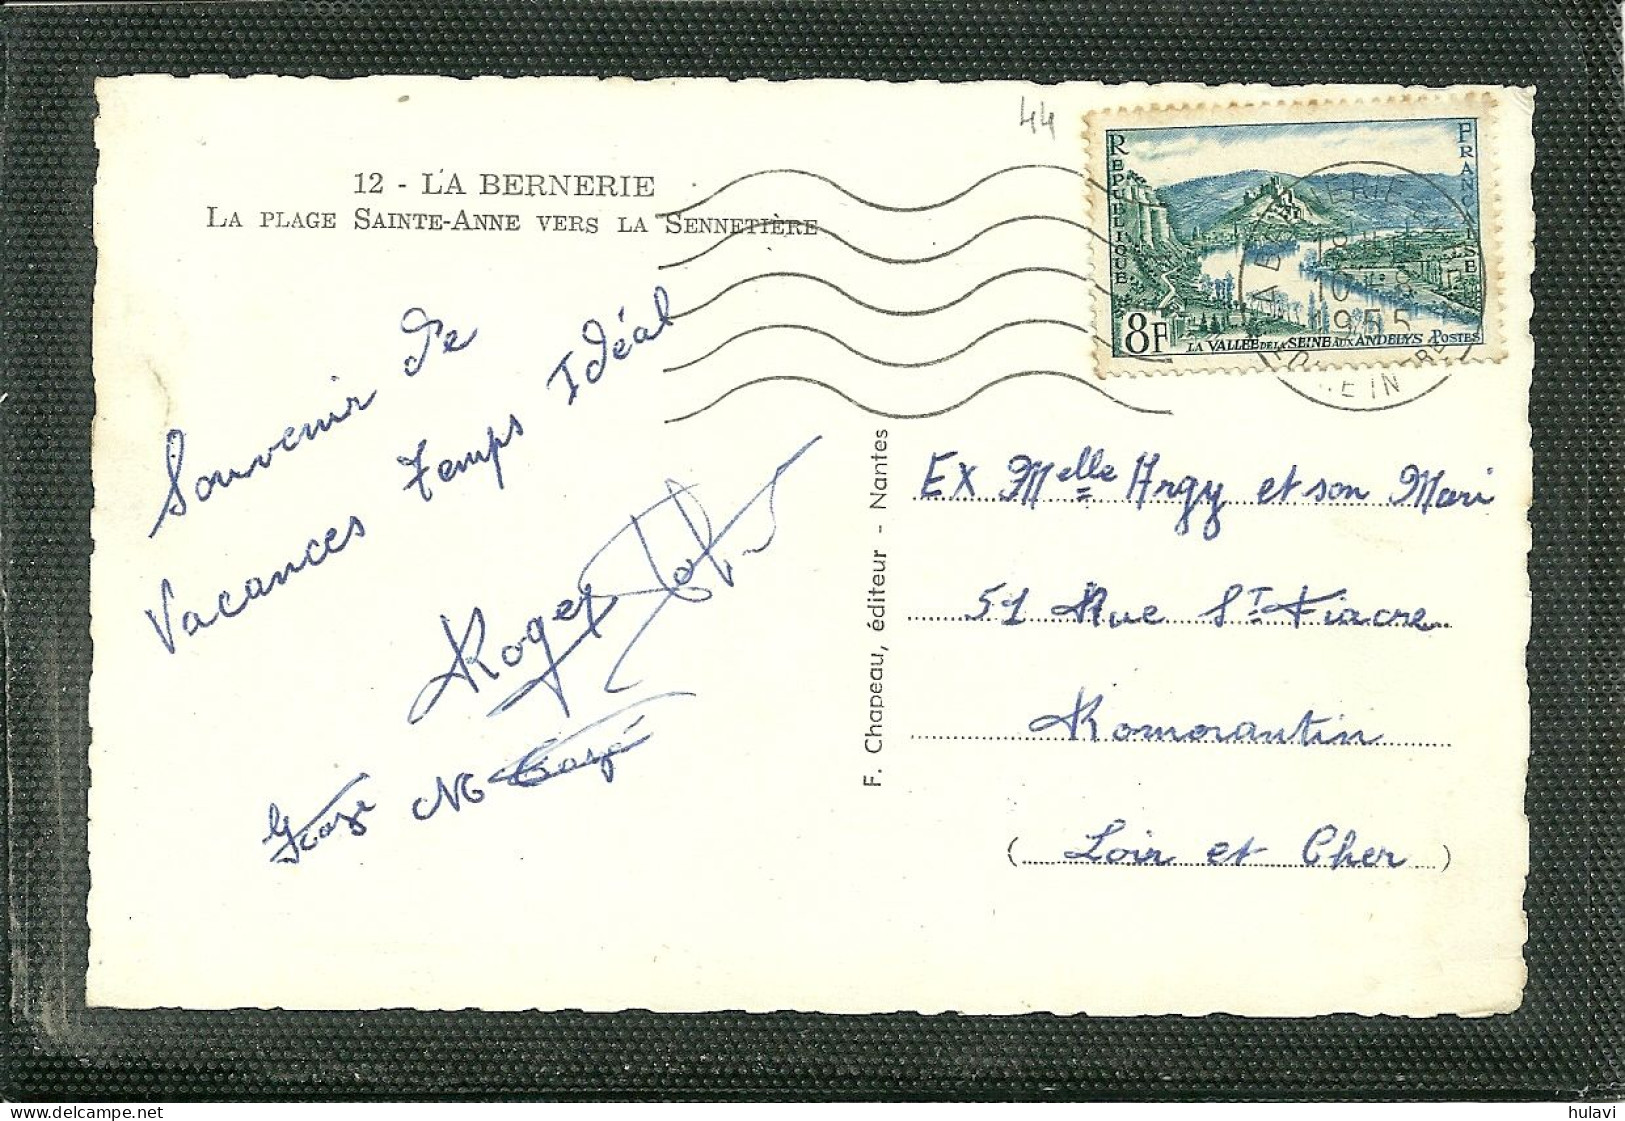 44
12 - LA BERNERIE
LA PLAGE SAINTE-ANNE VERS LA SENNETIÈRE
REPUBLIQUE FRANCAISE
8F
LA VALLEE DE LA SEINE AUX ANDELYS POSTES
18H
10 - 8
1955
Souvenir de
Vacances temps Idéal
Roger
F. Chapeau, éditeur - Nantes
EX Melle Argy et son Mari
51 Rue St Fiacre
Romorantin
(Loir et Cher)
hulavi
delcampe.net